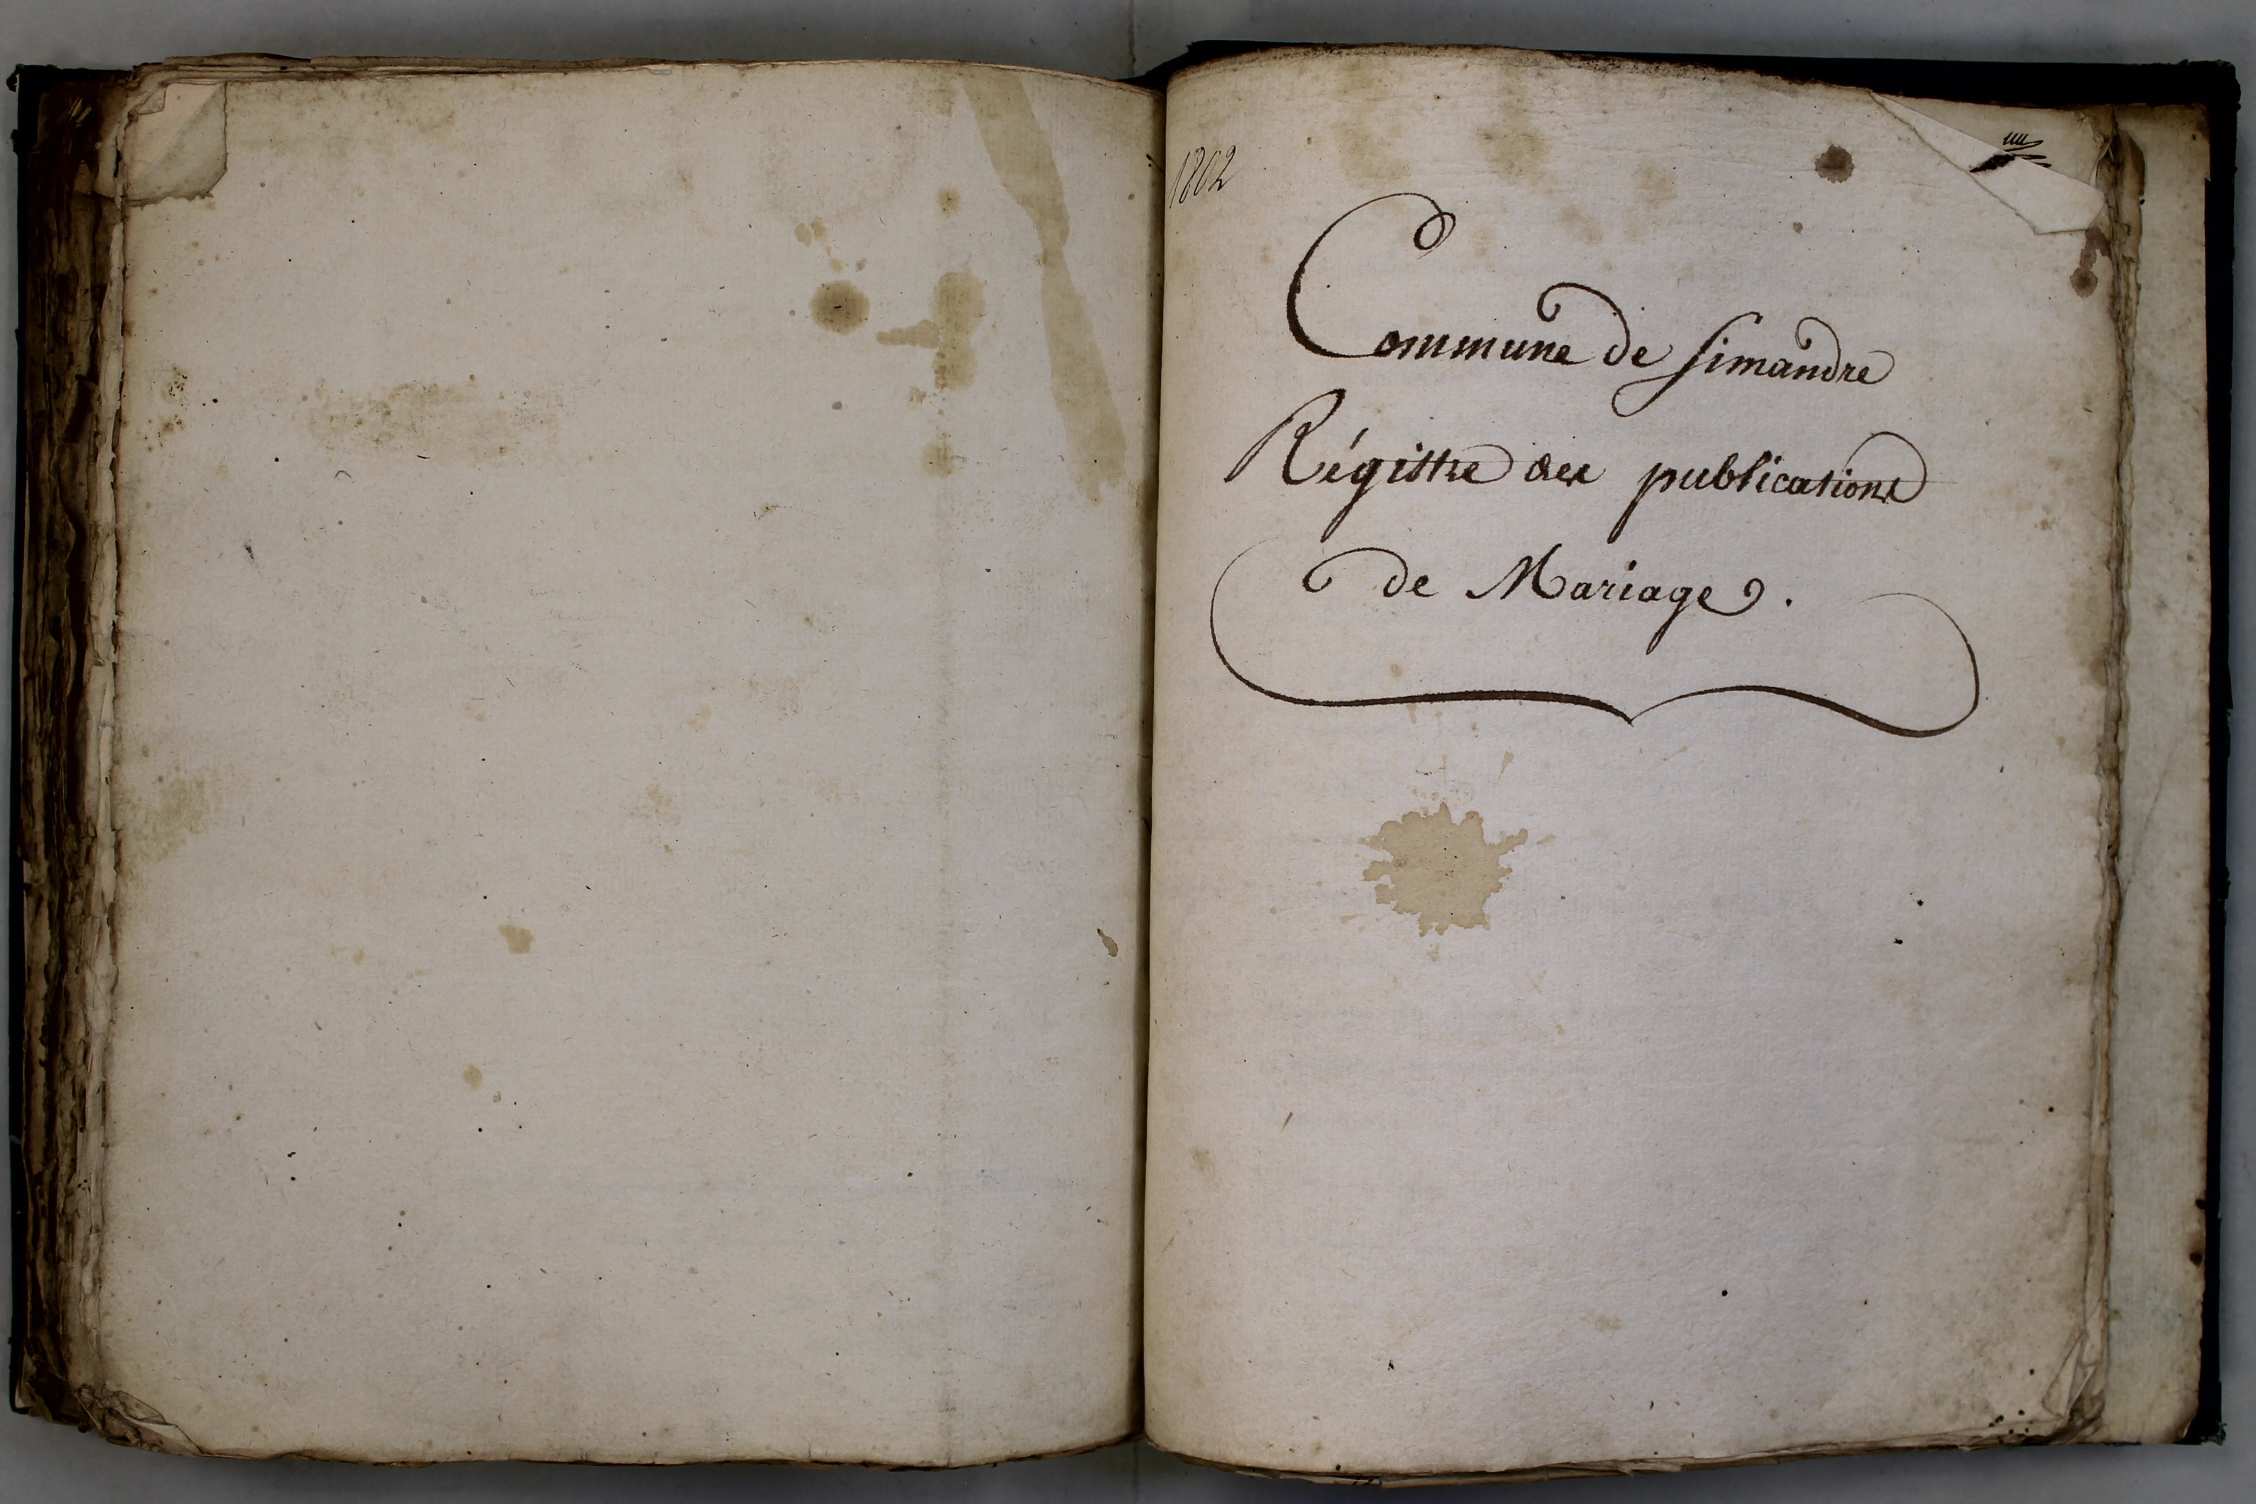 1802
Commune de Simandre
Régistre des publications
de Mariage.